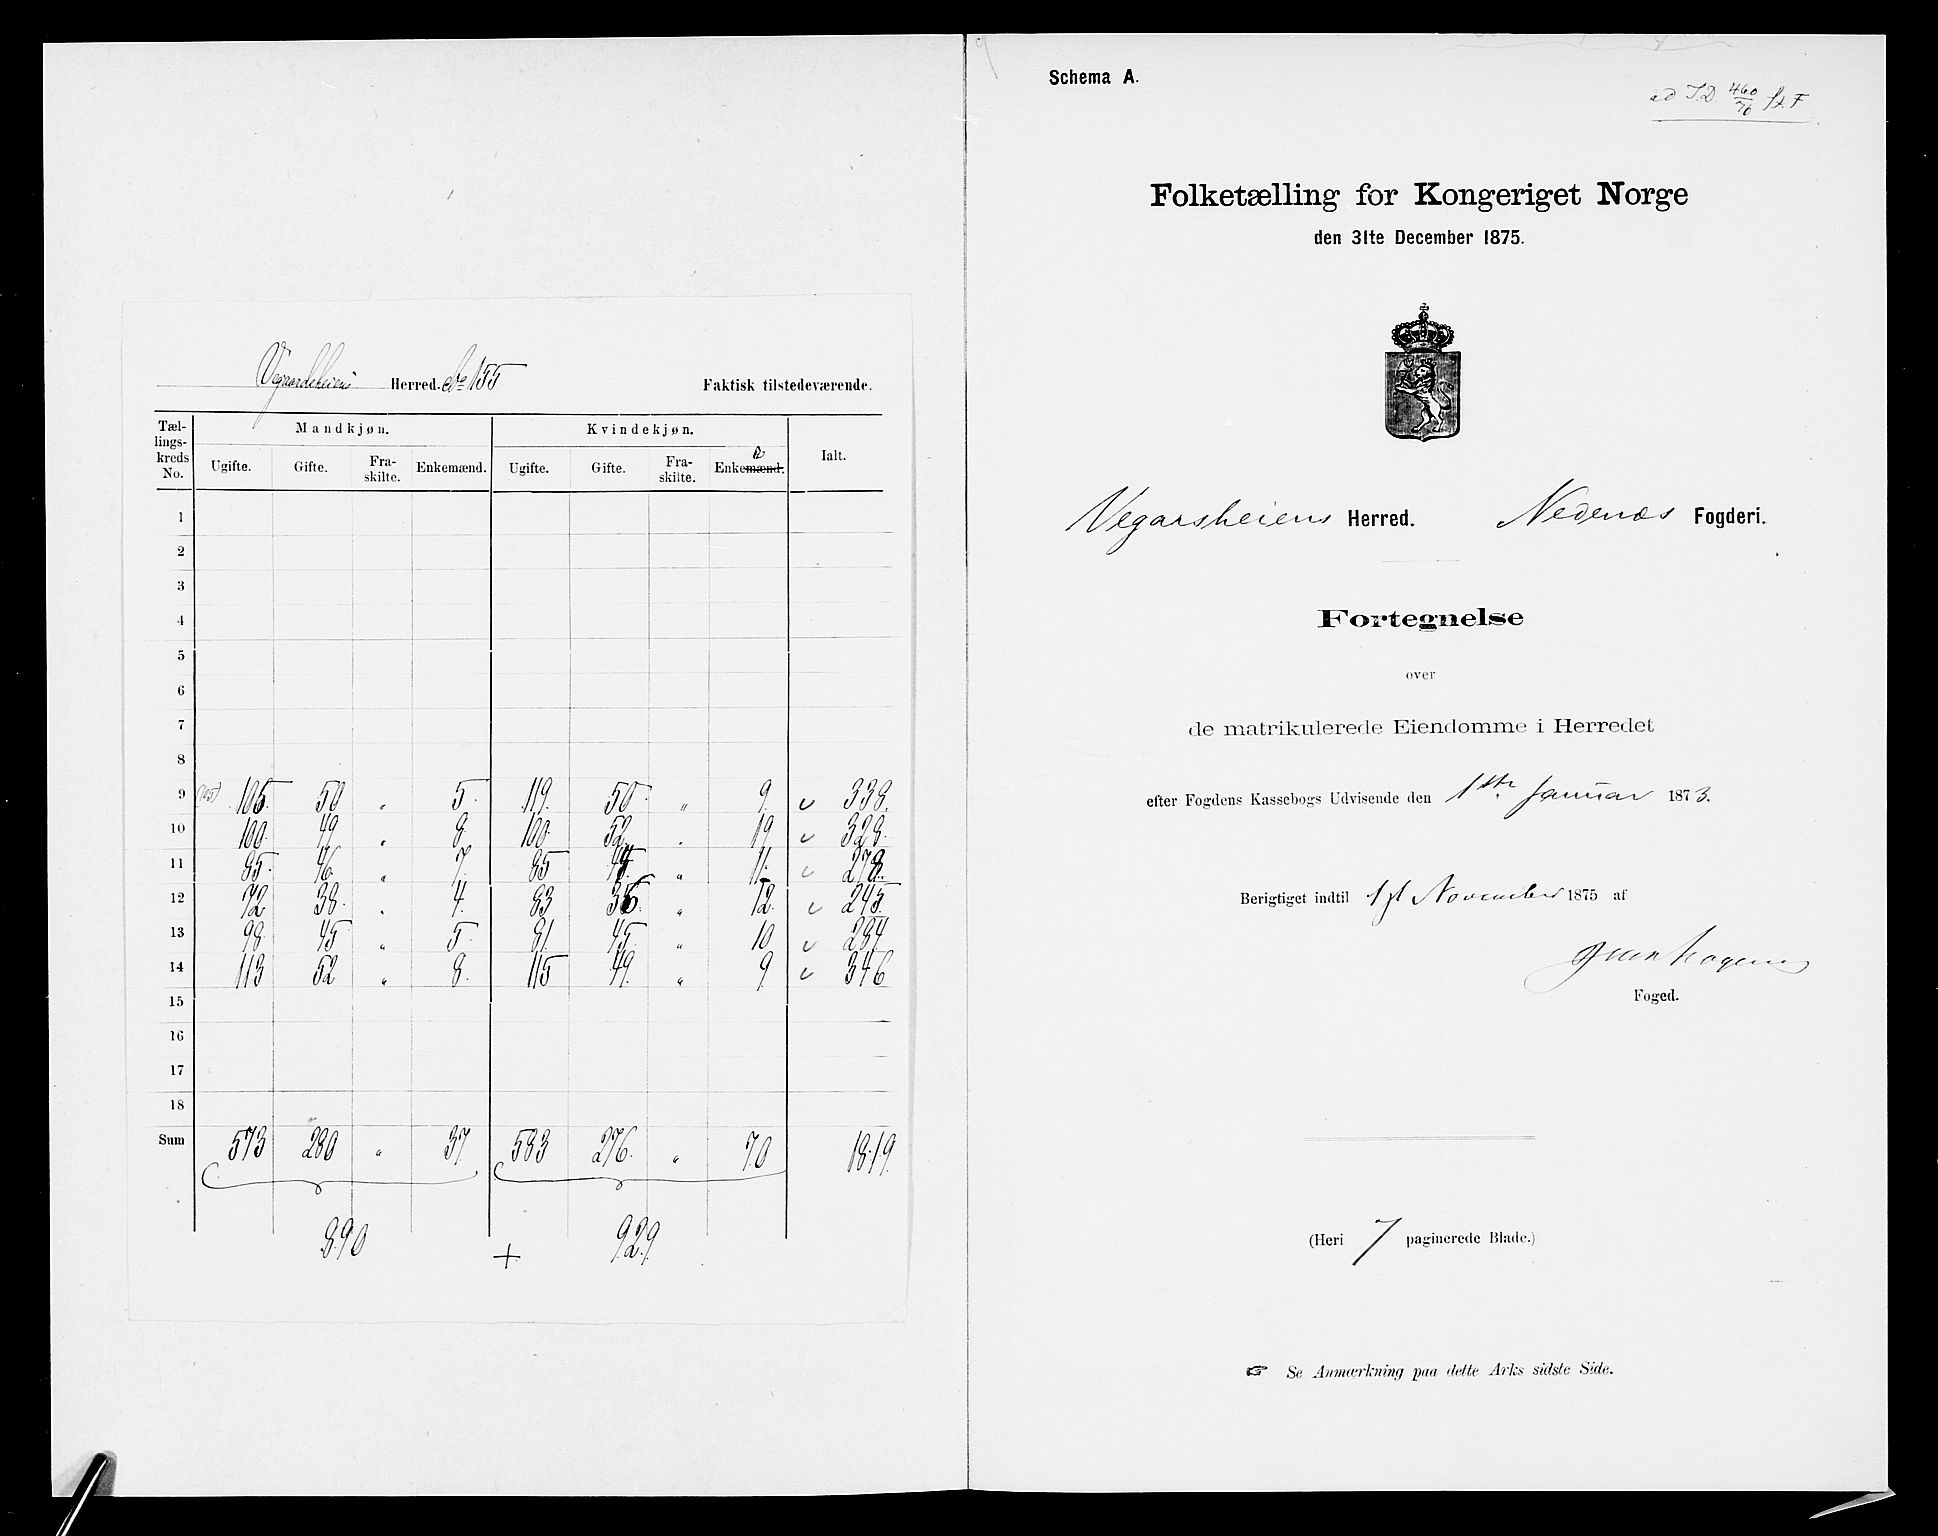 Vegaardsheiens Herred. No 155 Faktisk tilstedeværende.
Tællingskreds No. Mandkjøn. Kvindekjøn. Ialt.
Ugifte. Gifte. Fraskilte. Enkemænd. Ugifte. Gifte. Fraskilte. Enkemænd.
1
2
3
4
5
6
7
8
9 (105) 105. 50 " 5. 119. 50. " 9. 338.
10 100. 49 " 8. 100. 52. " 19 328.
11 85. 46. " 7. 85 44 " 11. 278.
12 72 38. " 4. 83 36. " 12. 245.
13 98. 45 " 5. 81. 45. " 10 284
14 113 52 " 8. 115 49. " 9. 346
15
16
17
18
Sum 573 280 " 37 583 276. " 70 1819.
890 + 929.
Schema A.
ad J.D. 460/76 st. F
Folketælling for Kongeriget Norge
den 31te December 1875.
Vegarsheiens Herred. Nedenæs Fogderi.
Fortegnelse
over
de matrikulerede Eiendomme i Herredet
efter Fogdens Kassebogs Udvisende den 1ste Januar 1873.
Berigtiget indtil 1st November 1875 af
Foged.
(Heri 7 paginerede Blade.)
☞ Se Anmærkning paa dette Arks sidste Side.